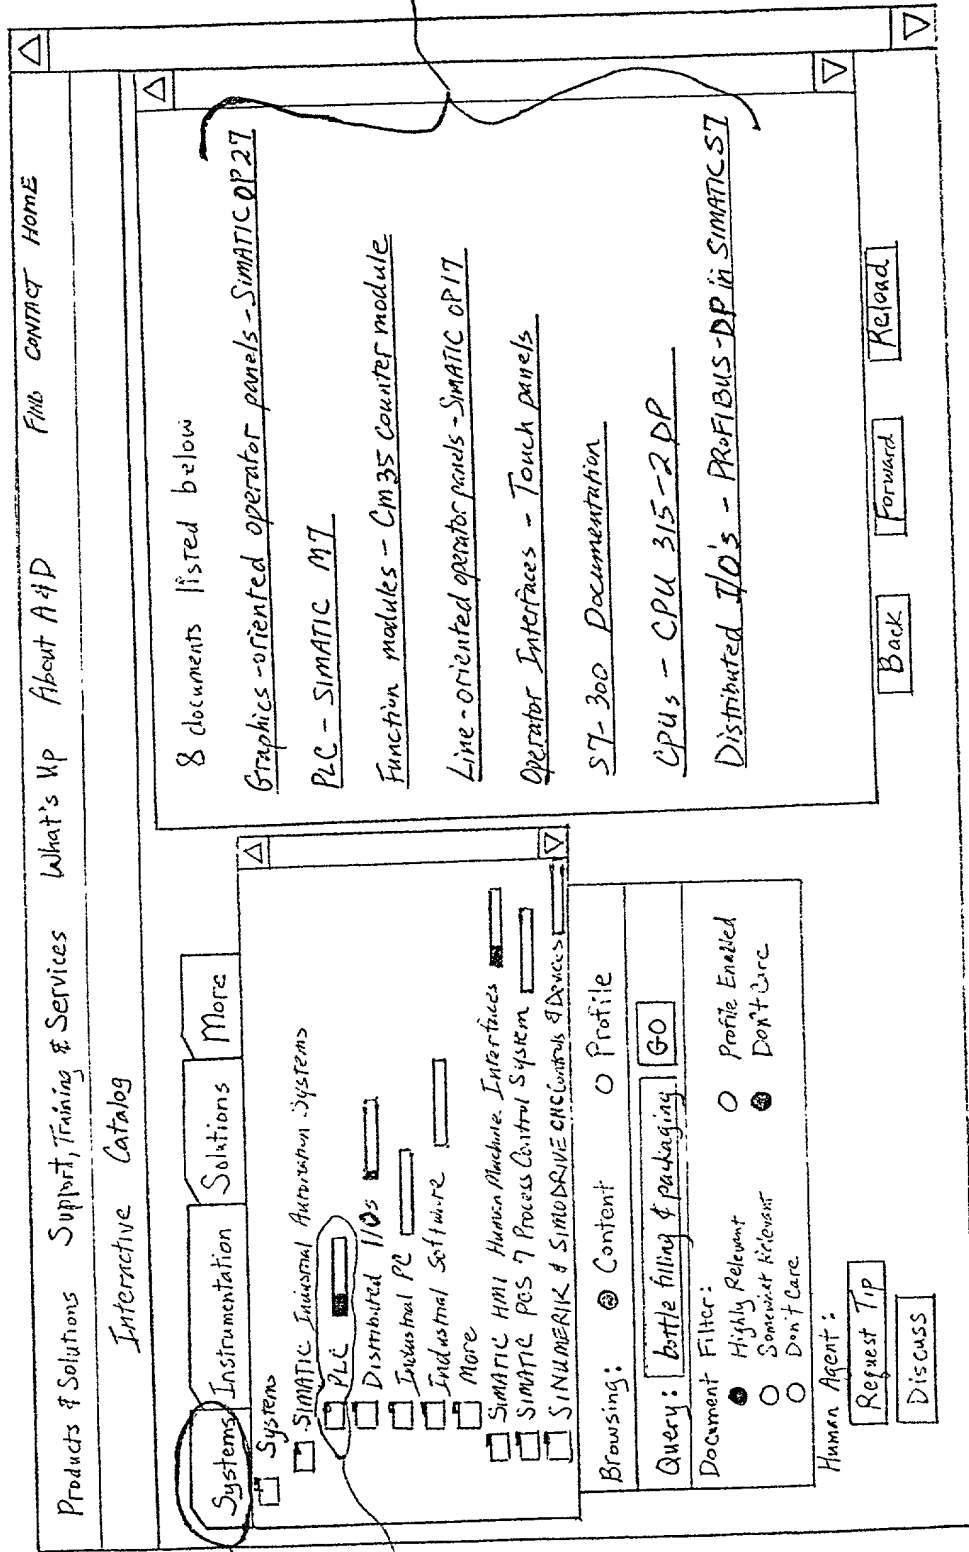 Products & Solutions   Support, Training & Services   What's Up   About A&D   FIND   CONTACT   HOME
Interactive Catalog
Systems   Instrumentation   Solutions   More
Systems
SIMATIC Industrial Automation Systems
PLC
Distributed I/Os
Industrial PC
Industrial Software
More
SIMATIC HMI Human Machine Interfaces
SIMATIC PCS 7 Process Control System
SINUMERIK & SIMODRIVE CNC Controls & Devices
Browsing:   Content   Profile
Query: bottle filling & packaging   GO
Document Filter:
Highly Relevant   Profile Enabled
Somewhat Relevant   Don't Care
Don't Care
Human Agent:
Request Tip
Discuss
8 documents listed below
Graphics-oriented operator panels - SIMATIC OP27
PLC - SIMATIC M7
Function modules - Cm35 Counter module
Line-oriented operator panels - SIMATIC OP17
Operator Interfaces - Touch panels
S7-300 Documentation
CPUs - CPU 315-2 DP
Distributed I/O's - PROFIBUS-DP in SIMATIC S7
Back   Forward   Reload